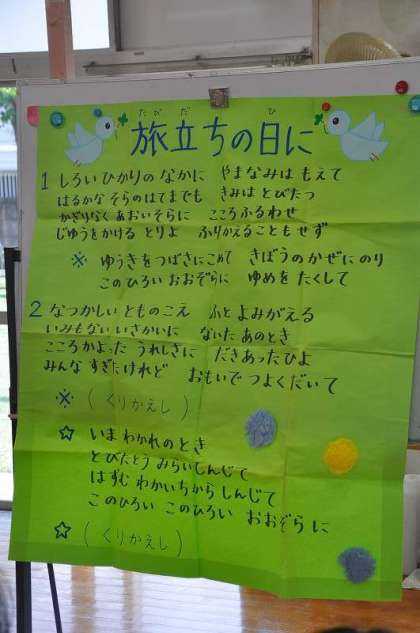 たびだ ひ
旅立ちの日に
1 しろい ひかりの なかに やまなみは もえて
はるかな そらの はてまでも きみは とびたつ
かぎりなく あおい そらに こころ ふるわせ
じゆうを かける とりよ ふりかえる ことも せず
※ ゆうきを つばさに こめて きぼうの かぜに のり
この ひろい おおぞらに ゆめを たくして
2 なつかしい とものこえ ふと よみがえる
いみもない いさかいに ないた あのとき
こころ かよった うれしさに だきあったひよ
みんな すぎたけれど おもいで つよく だいて
※ (くりかえし)
☆ いま わかれの とき
とびたとう みらい しんじて
はずむ わかい ちから しんじて
このひろい このひろい おおぞらに
☆ (くりかえし)